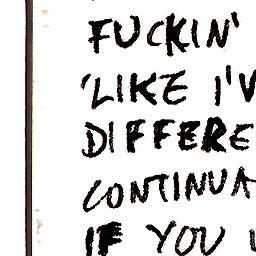 FUCKIN'
'LIKE I'V
DIFFERE
CONTINUA
IF YOU